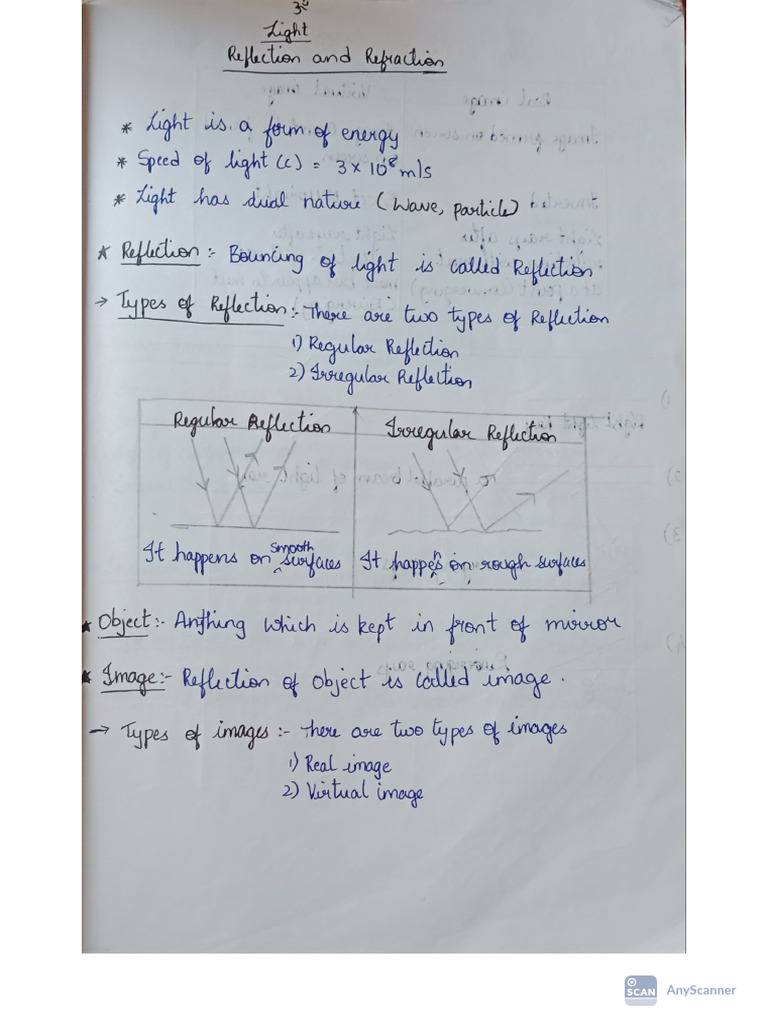 Light
Reflection and Refraction
* Light is a form of energy
* Speed of light (c) = 3 × 10⁸ m/s
* Light has dual nature (Wave, particle)
* Reflection :- Bouncing of light is called Reflection.
→ Types of Reflection :- There are two types of Reflection
1) Regular Reflection
2) Irregular Reflection
Regular Reflection
Irregular Reflection
It happens on smooth surfaces
It happens on rough surfaces
* Object :- Anything which is kept in front of mirror
* Image :- Reflection of Object is called image.
→ Types of images :- There are two types of images
1) Real image
2) Virtual image
SCAN AnyScanner